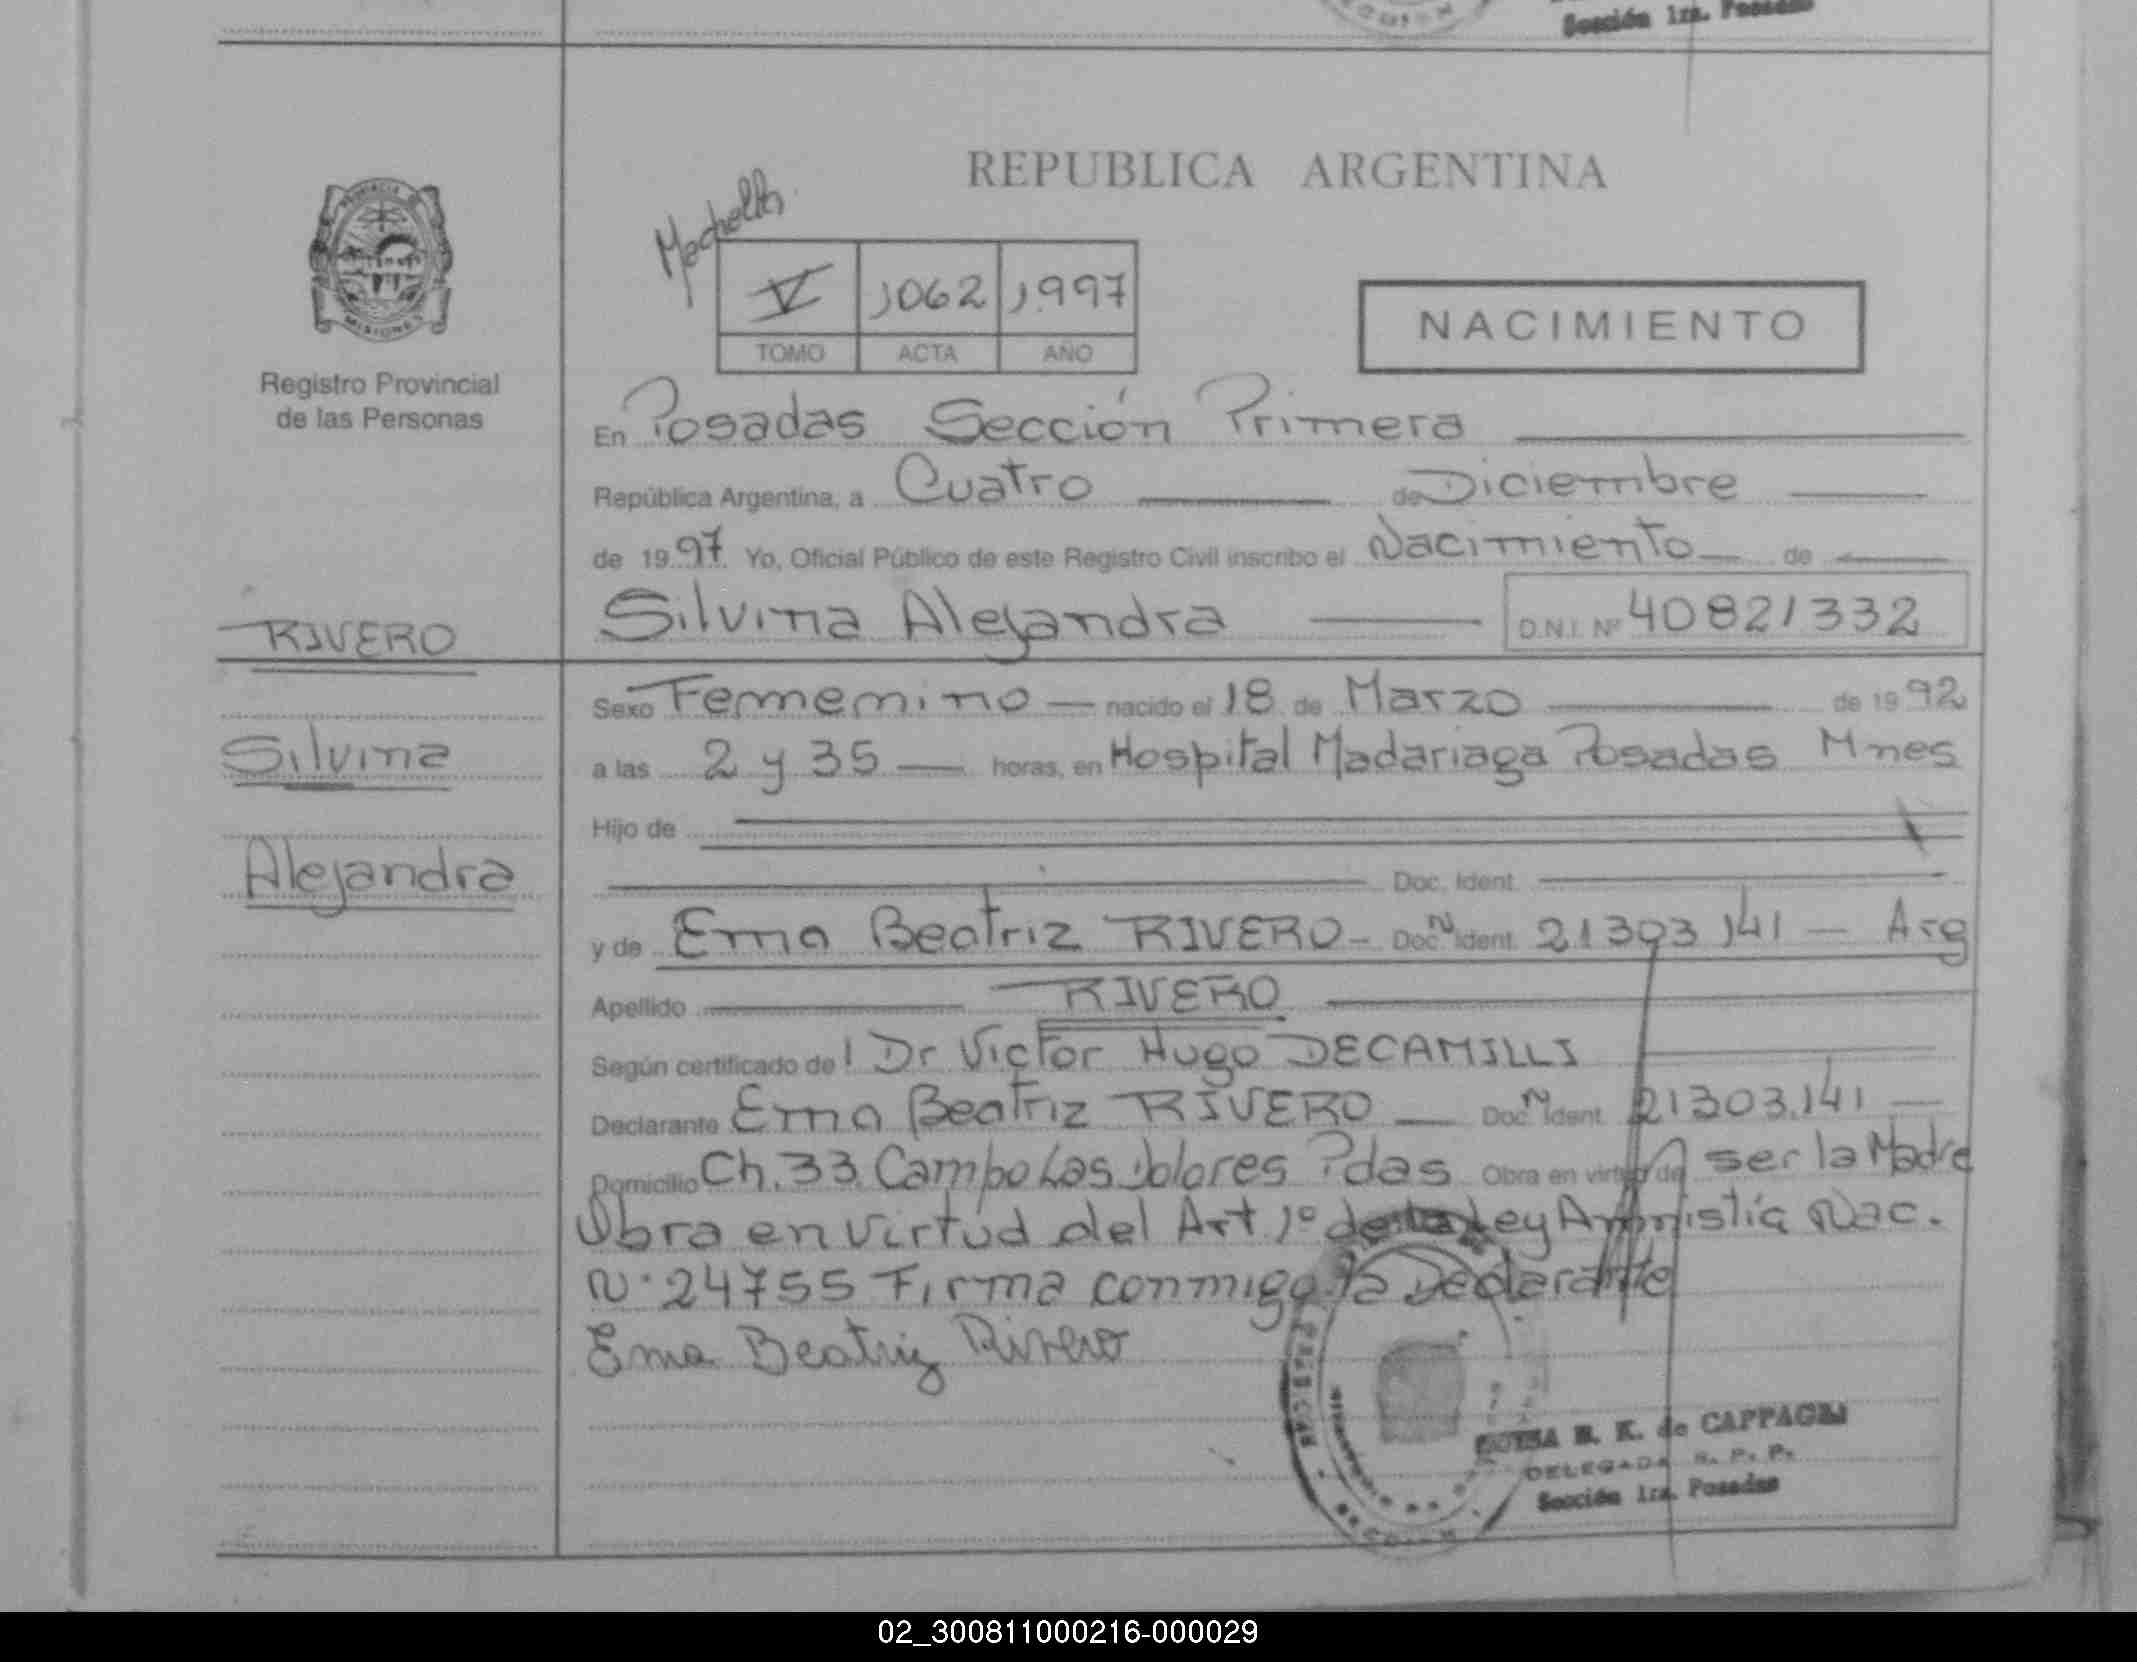 Sección 1ra. Posadas
REPUBLICA ARGENTINA
PROVINCIA DE
MISIONES
Registro Provincial
de las Personas
V 1062 1997
TOMO ACTA AÑO
NACIMIENTO
En Posadas Sección Primera
República Argentina, a Cuatro de Diciembre
de 1997 Yo, Oficial Público de este Registro Civil inscribo el Nacimiento de
RIVERO
Silvina Alejandra D.N.I. Nº 40821332
Sexo Fememino nacido el 18 de Marzo de 1992
Silvina
a las 2 y 35 horas, en Hospital Madariaga Posadas Mnes
Hijo de
Alejandra
Doc. Ident.
y de Ema Beatriz RIVERO - Doc. N Ident. 21303141 - Arg
Apellido RIVERO
Según certificado del Dr Victor Hugo DECAMILLI
Declarante Ema Beatriz RIVERO Doc. N Ident. 21303.141
Domicilio Ch. 33. Campo Las Dolores Pdas Obra en virtud de ser la Madre
Obra en virtud del Art 1º de la Ley Amnistía Nac.
Nº 24755 Firma conmigo la Declarante
Ema Beatriz Rivero
R. K. de CAPPAGLI
DELEGADA R. P. P.
Sección 1ra. Posadas
02_300811000216-000029